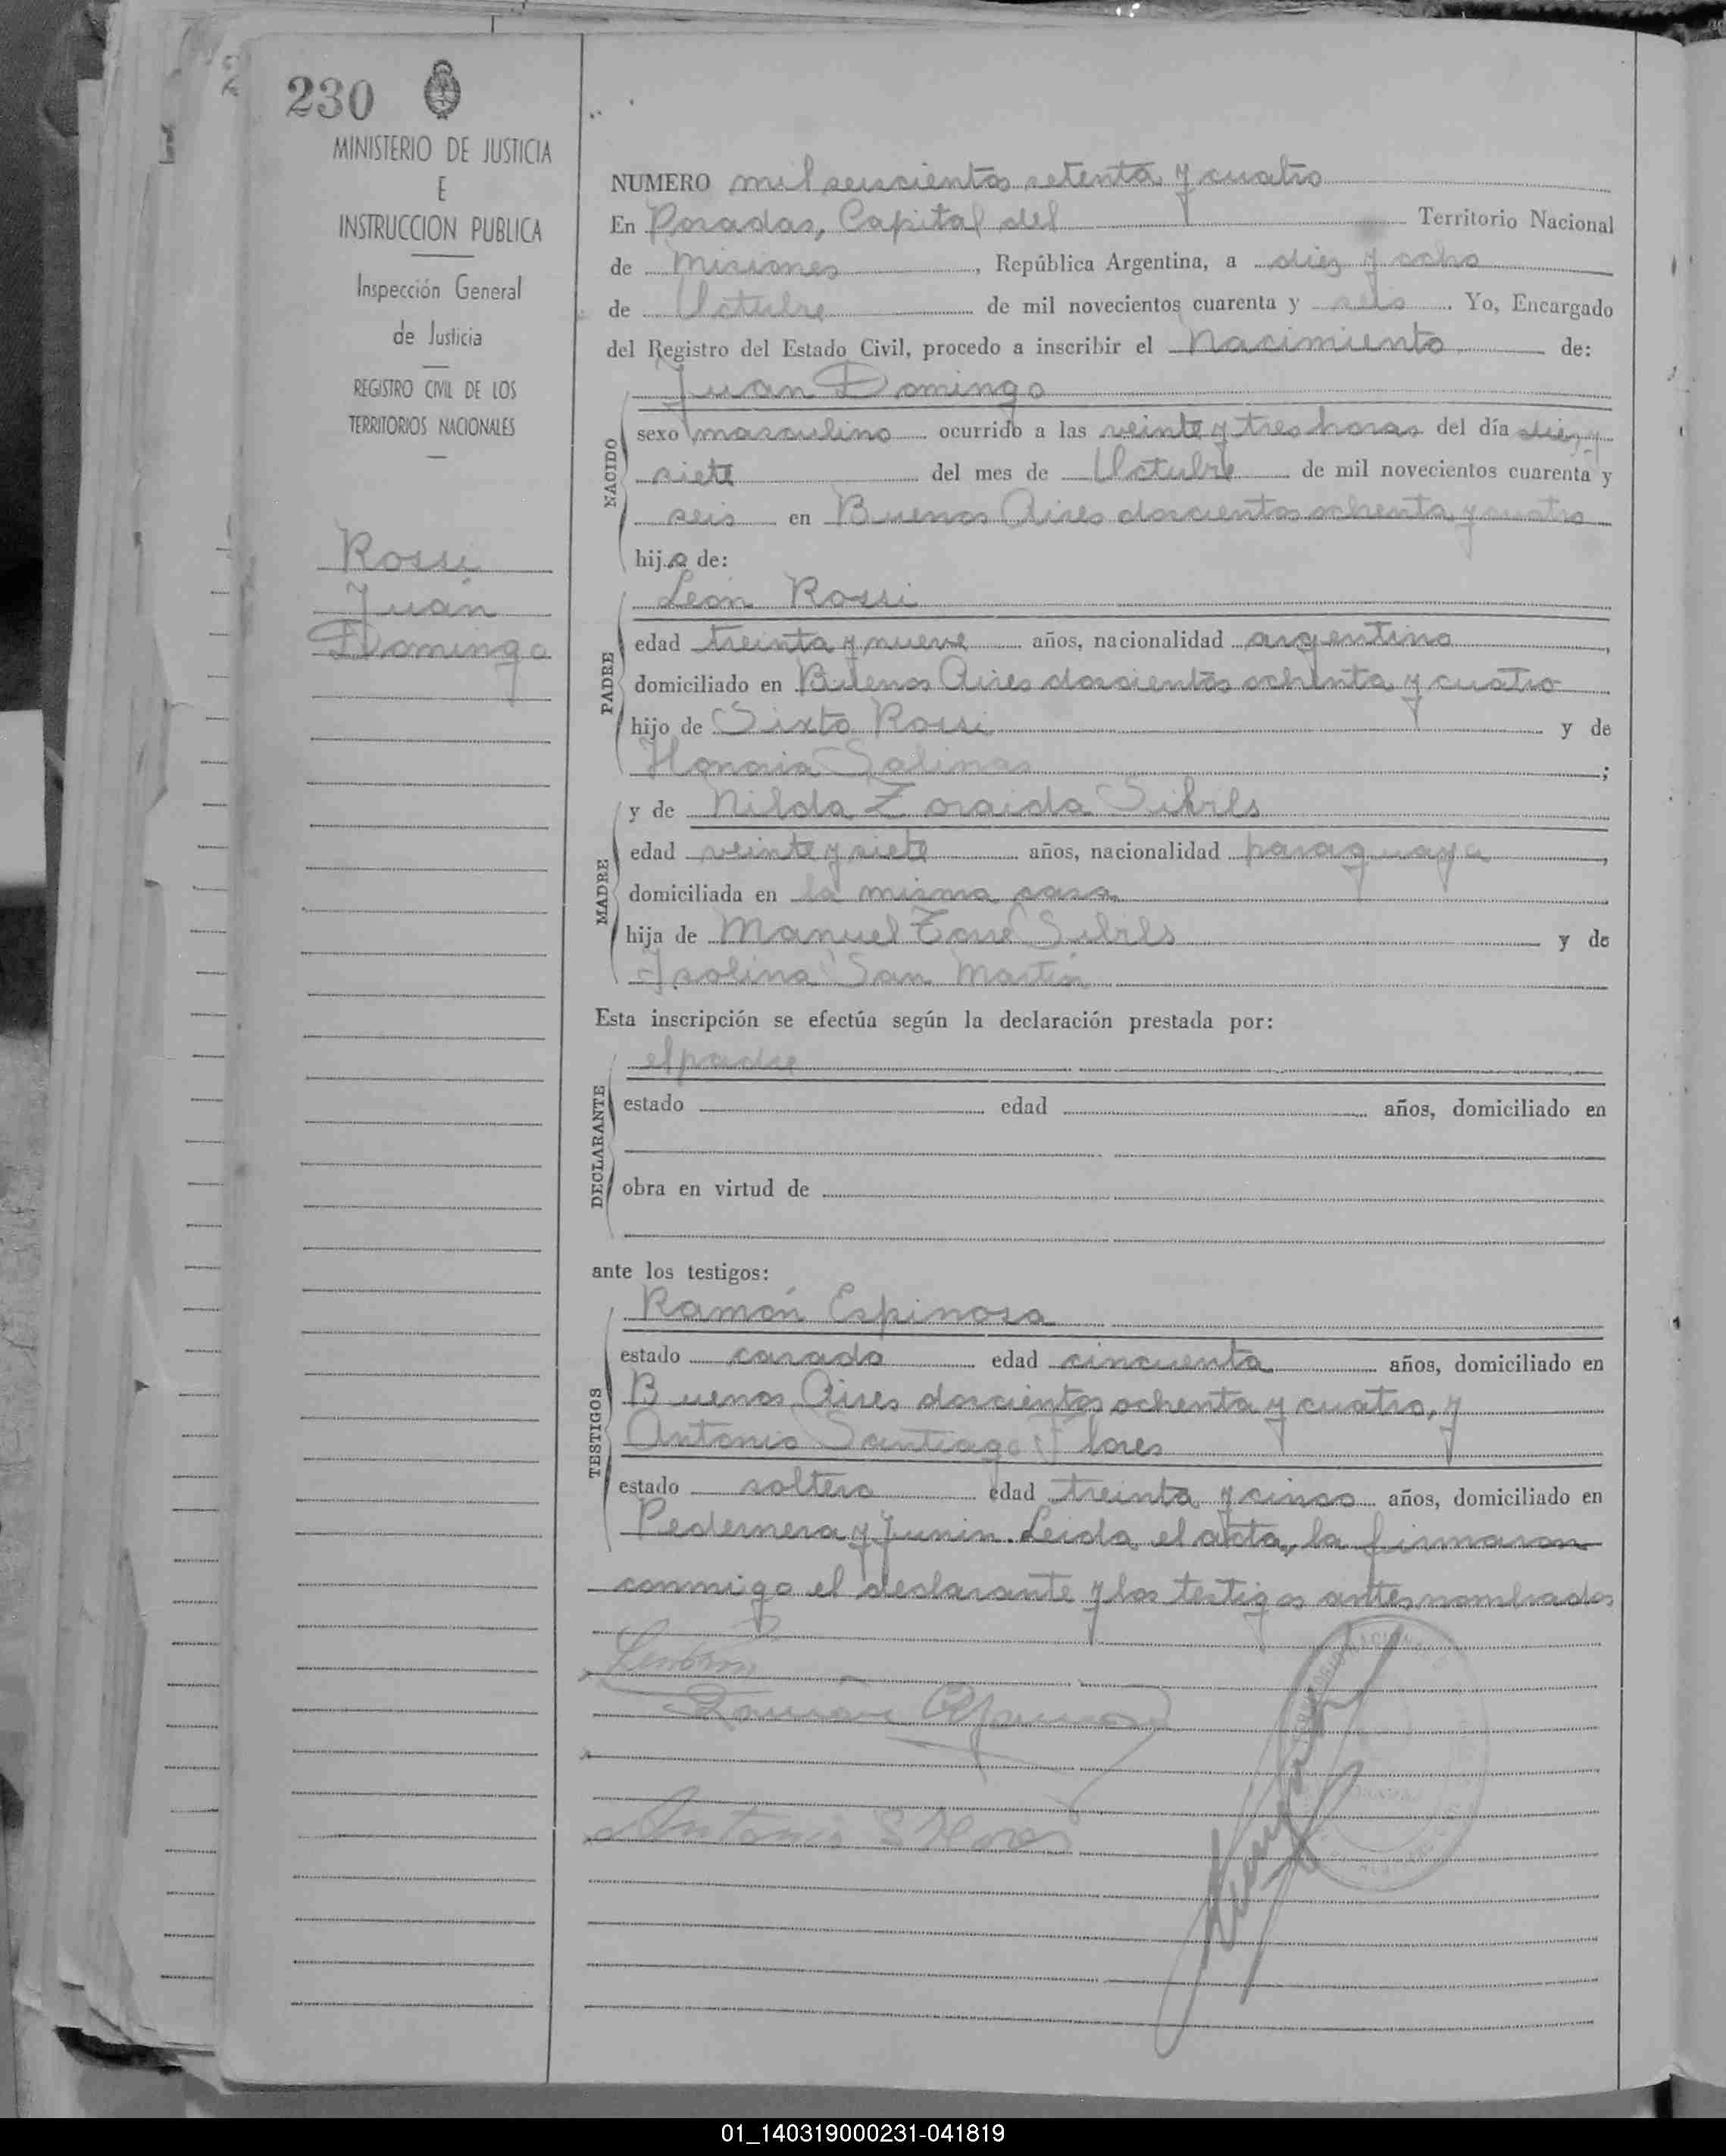 230
MINISTERIO DE JUSTICIA
E
INSTRUCCION PUBLICA
Inspección General
de Justicia
REGISTRO CIVIL DE LOS
TERRITORIOS NACIONALES
Rossi
Juan
Domingo
NUMERO mil seiscientos setenta y cuatro
En Posadas, Capital del Territorio Nacional
de Misiones, República Argentina, a diez y ocho
de Octubre de mil novecientos cuarenta y seis. Yo, Encargado
del Registro del Estado Civil, procedo a inscribir el Nacimiento de:
NACIDO
Juan Domingo
sexo masculino ocurrido a las veinte y tres horas del día diez y
siete del mes de Octubre de mil novecientos cuarenta y
seis en Buenos Aires doscientos ochenta y cuatro
hijo de:
PADRE
León Rossi
edad treinta y nueve años, nacionalidad argentino,
domiciliado en Buenos Aires doscientos ochenta y cuatro
hijo de Sixto Rossi y de
Salinas;
MADRE
y de Nilda Zoraida
edad veinte y siete años, nacionalidad paraguaya,
domiciliada en la misma casa
hija de Manuel José y de
Isolina San Martín
Esta inscripción se efectúa según la declaración prestada por:
DECLARANTE
el padre
estado edad años, domiciliado en
obra en virtud de
ante los testigos:
TESTIGOS
Ramón Espinosa
estado casado edad cincuenta años, domiciliado en
Buenos Aires doscientos ochenta y cuatro, y
Antonio Santiago Flores
estado soltero edad treinta y cinco años, domiciliado en
Pedernera y Junin. Leida el acta, la firmaron
conmigo el declarante y los testigos antes nombrados
Ramón Espinosa
Antonio S Flores
01_140319000231-041819